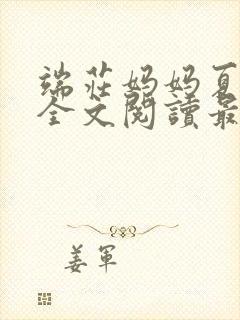 端莊妈妈夏
全文閱讀最
姜軍